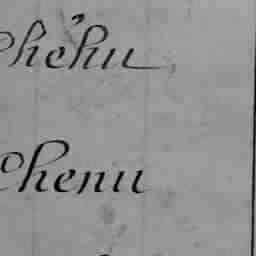 Chéhu
Chenu